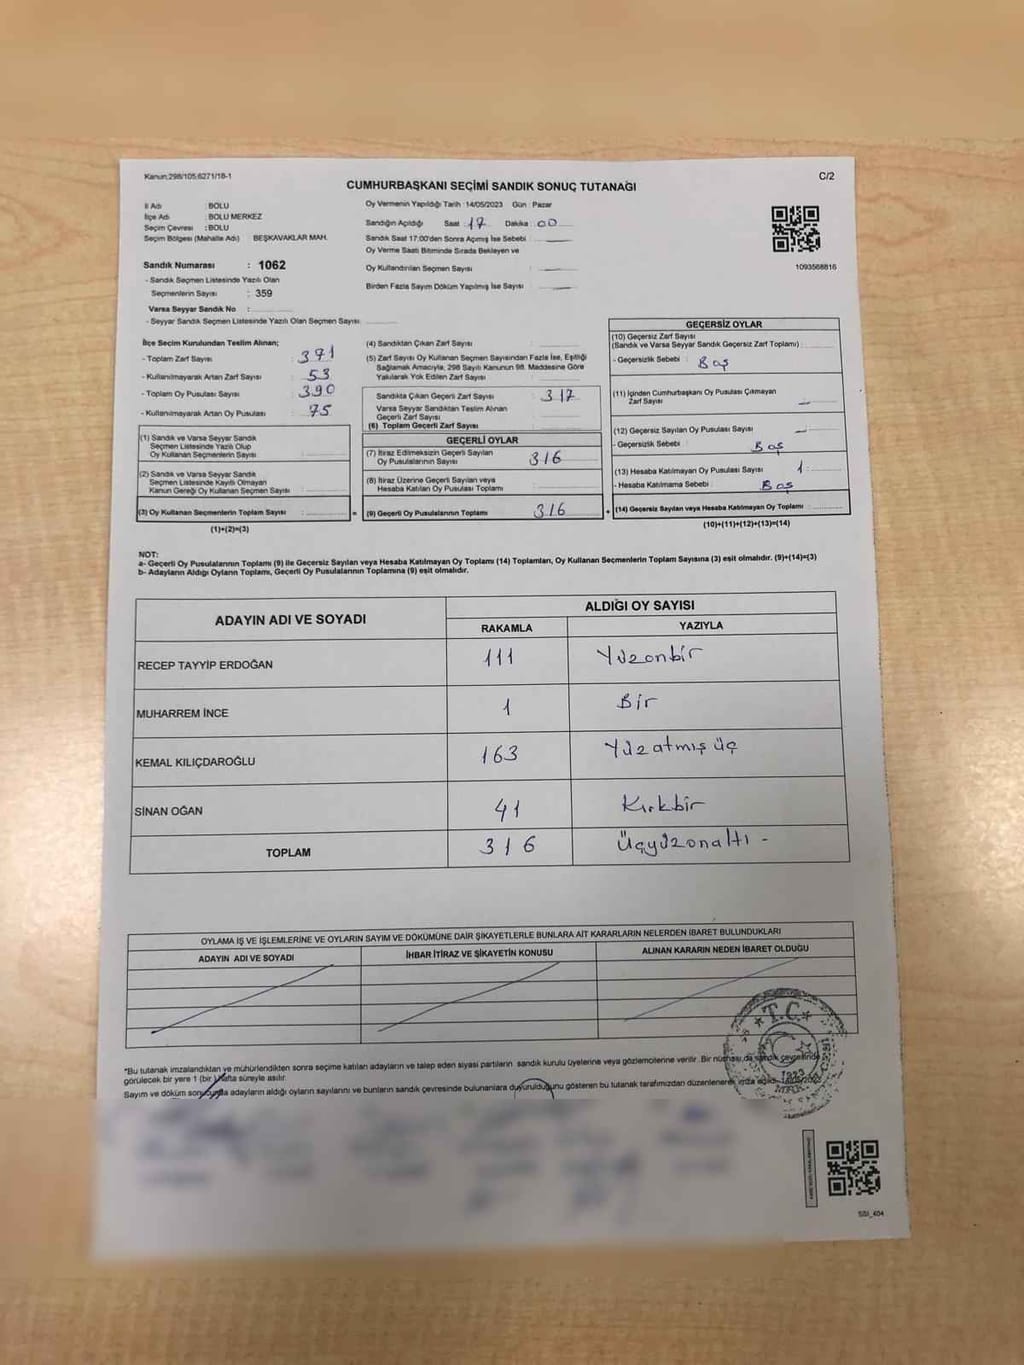 Kanun:298/105;6271/18-1
C/2
CUMHURBAŞKANI SEÇİMİ SANDIK SONUÇ TUTANAĞI
İl Adı : BOLU
İlçe Adı : BOLU MERKEZ
Seçim Çevresi : BOLU
Seçim Bölgesi (Mahalle Adı) BEŞKAVAKLAR MAH.
Sandık Numarası : 1062
- Sandık Seçmen Listesinde Yazılı Olan
Seçmenlerin Sayısı : 359
Varsa Seyyar Sandık No :
- Seyyar Sandık Seçmen Listesinde Yazılı Olan Seçmen Sayısı
Oy Vermenin Yapıldığı Tarih :14/05/2023 Gün : Pazar
Sandığın Açıldığı Saat : 17 Dakika : 00
Sandık Saat 17:00'den Sonra Açımış İse Sebebi
Oy Verme Saati Bitiminde Sırada Bekleyen ve
Oy Kullandırılan Seçmen Sayısı :
Birden Fazla Sayım Döküm Yapılmış İse Sayısı :
1093568816
İlçe Seçim Kurulundan Teslim Alınan;
- Toplam Zarf Sayısı : 371
- Kullanılmayarak Artan Zarf Sayısı : 53
- Toplam Oy Pusulası Sayısı : 390
- Kullanılmayarak Artan Oy Pusulası : 75
(1) Sandık ve Varsa Seyyar Sandık
Seçmen Listesinde Yazılı Olup
Oy Kullanan Seçmenlerin Sayısı :
(2) Sandık ve Varsa Seyyar Sandık
Seçmen Listesinde Kayıtlı Olmayan
Kanun Gereği Oy Kullanan Seçmen Sayısı :
(3) Oy Kullanan Seçmenlerin Toplam Sayısı :
(1)+(2)=(3)
(4) Sandıktan Çıkan Zarf Sayısı :
(5) Zarf Sayısı Oy Kullanan Seçmen Sayısından Fazla İse, Eşitliği
Sağlamak Amacıyla; 298 Sayılı Kanunun 98. Maddesine Göre
Yakılarak Yok Edilen Zarf Sayısı :
Sandıkta Çıkan Geçerli Zarf Sayısı : 317
Varsa Seyyar Sandıktan Teslim Alınan
Geçerli Zarf Sayısı :
(6) Toplam Geçerli Zarf Sayısı :
GEÇERLİ OYLAR
(7) İtiraz Edilmeksizin Geçerli Sayılan
Oy Pusulalarının Sayısı : 316
(8) İtiraz Üzerine Geçerli Sayılan veya
Hesaba Katılan Oy Pusulası Toplamı :
(9) Geçerli Oy Pusulalarının Toplamı : 316
GEÇERSİZ OYLAR
(10) Geçersiz Zarf Sayısı
(Sandık ve Varsa Seyyar Sandık Geçersiz Zarf Toplamı) :
- Geçersizlik Sebebi : Boş
(11) İçinden Cumhurbaşkanı Oy Pusulası Çıkmayan
Zarf Sayısı :
(12) Geçersiz Sayılan Oy Pusulası Sayısı :
- Geçersizlik Sebebi : Boş
(13) Hesaba Katılmayan Oy Pusulası Sayısı : 1
- Hesaba Katılmama Sebebi : Boş
(14) Geçersiz Sayılan veya Hesaba Katılmayan Oy Toplamı :
(10)+(11)+(12)+(13)=(14)
NOT:
a- Geçerli Oy Pusulalarının Toplamı (9) ile Geçersiz Sayılan veya Hesaba Katılmayan Oy Toplamı (14) Toplamları, Oy Kullanan Seçmenlerin Toplam Sayısına (3) eşit olmalıdır. (9)+(14)=(3)
b- Adayların Aldığı Oyların Toplamı, Geçerli Oy Pusulalarının Toplamına (9) eşit olmalıdır.
ADAYIN ADI VE SOYADI
ALDIĞI OY SAYISI
RAKAMLA YAZIYLA
RECEP TAYYİP ERDOĞAN 111 Yüzonbir
MUHARREM İNCE 1 Bir
KEMAL KILIÇDAROĞLU 163 Yüzatmışüç
SİNAN OĞAN 41 Kırkbir
TOPLAM 316 Üçyüzonaltı -
OYLAMA İŞ VE İŞLEMLERİNE VE OYLARIN SAYIM VE DÖKÜMÜNE DAİR ŞİKAYETLERLE BUNLARA AİT KARARLARIN NELERDEN İBARET BULUNDUKLARI
ADAYIN ADI VE SOYADI İHBAR İTİRAZ VE ŞİKAYETİN KONUSU ALINAN KARARIN NEDEN İBARET OLDUĞU
*Bu tutanak imzalandıktan ve mühürlendikten sonra seçime katılan adayların ve talep eden siyasi partilerin sandık kurulu üyelerine veya gözlemcilerine verilir. Bir nüshası da sandık çevresinde
görülecek bir yere 1 (bir) hafta süreyle asılır.
Sayım ve döküm sonucunda adayların aldığı oyların sayılarını ve bunların sandık çevresinde bulunanlara duyurulduğunu gösteren bu tutanak tarafımızdan düzenlenerek imza edildi.
T.C.
1923
SSI_404